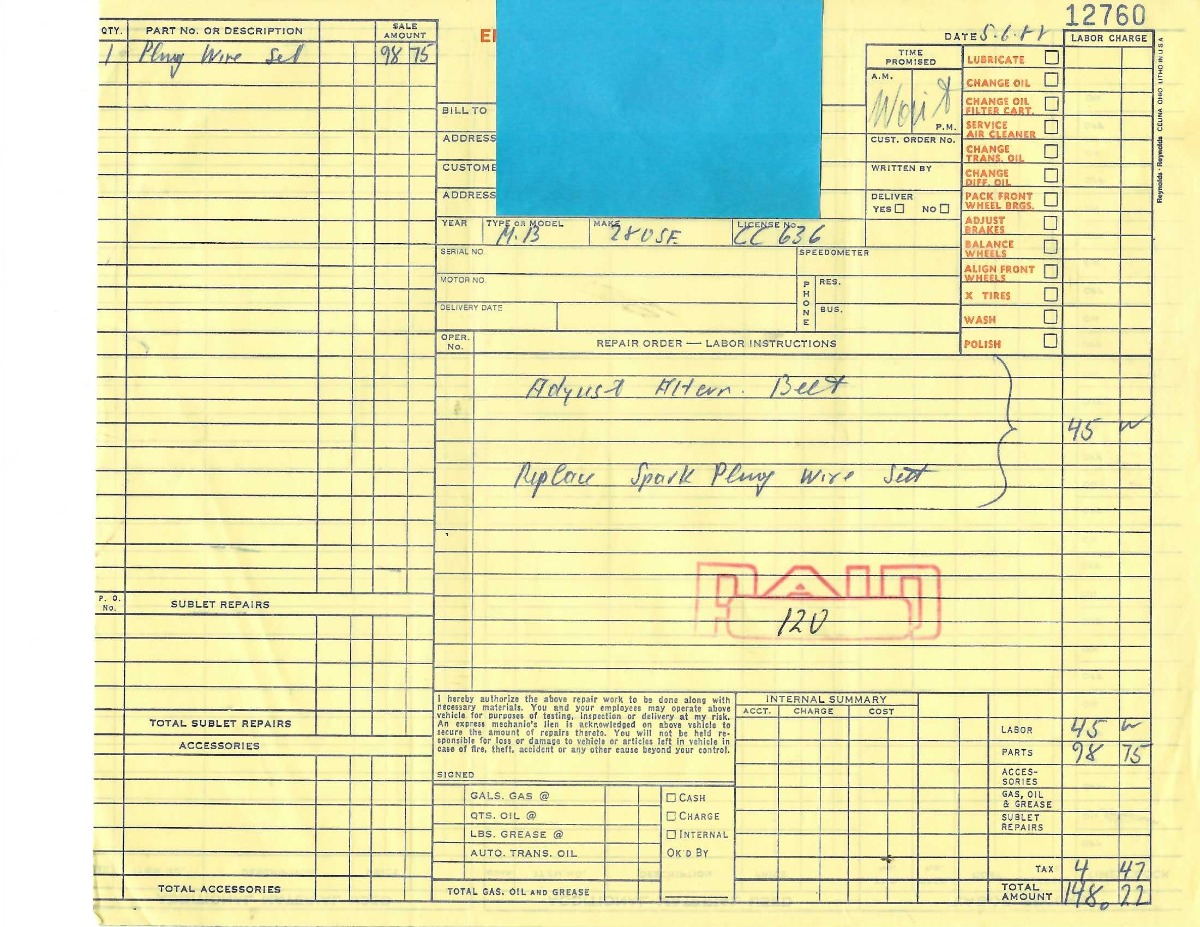 12760
QTY. PART No. OR DESCRIPTION SALE AMOUNT
1 Plug Wire Set 98 75
DATE 5.6.88
LABOR CHARGE
TIME PROMISED
A.M.
Wait
P.M.
BILL TO
ADDRESS
CUSTOME
ADDRESS
CUST. ORDER No.
WRITTEN BY
DELIVER
YES NO
LUBRICATE
CHANGE OIL
CHANGE OIL FILTER CART.
SERVICE AIR CLEANER
CHANGE TRANS. OIL
CHANGE DIFF. OIL
PACK FRONT WHEEL BRGS.
ADJUST BRAKES
BALANCE WHEELS
ALIGN FRONT WHEELS
X TIRES
WASH
POLISH
Reynolds + Reynolds CELINA OHIO LITHO IN U.S.A.
YEAR TYPE OR MODEL MAKE LICENSE No.
M.B 280SE CC 636
SERIAL NO. SPEEDOMETER
MOTOR NO. PHONE RES.
DELIVERY DATE BUS.
OPER. No. REPAIR ORDER — LABOR INSTRUCTIONS
Adjust Altern. Belt
45
Replace Spark Plug Wire Sett
PAID
120
P. O. No. SUBLET REPAIRS
TOTAL SUBLET REPAIRS
ACCESSORIES
TOTAL ACCESSORIES
I hereby authorize the above repair work to be done along with
necessary materials. You and your employees may operate above
vehicle for purposes of testing, inspection or delivery at my risk.
An express mechanic's lien is acknowledged on above vehicle to
secure the amount of repairs thereto. You will not be held re-
sponsible for loss or damage to vehicle or articles left in vehicle in
case of fire, theft, accident or any other cause beyond your control.
SIGNED
GALS. GAS @
QTS. OIL @
LBS. GREASE @
AUTO. TRANS. OIL
TOTAL GAS. OIL AND GREASE
CASH
CHARGE
INTERNAL
OK'D BY
INTERNAL SUMMARY
ACCT. CHARGE COST
LABOR 45
PARTS 98 75
ACCES-SORIES
GAS, OIL & GREASE
SUBLET REPAIRS
TAX 4 47
TOTAL AMOUNT 148.22